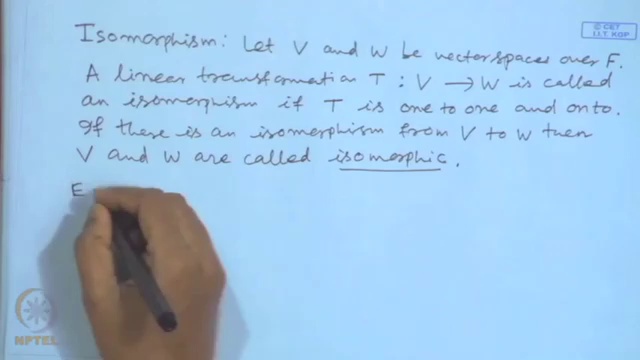 © CET
I.I.T. KGP
Isomorphism: Let V and W be vector spaces over F.
A linear transformation T : V → W is called
an isomorphism if T is one to one and onto.
If there is an isomorphism from V to W then
V and W are called isomorphic.
E
NPTEL